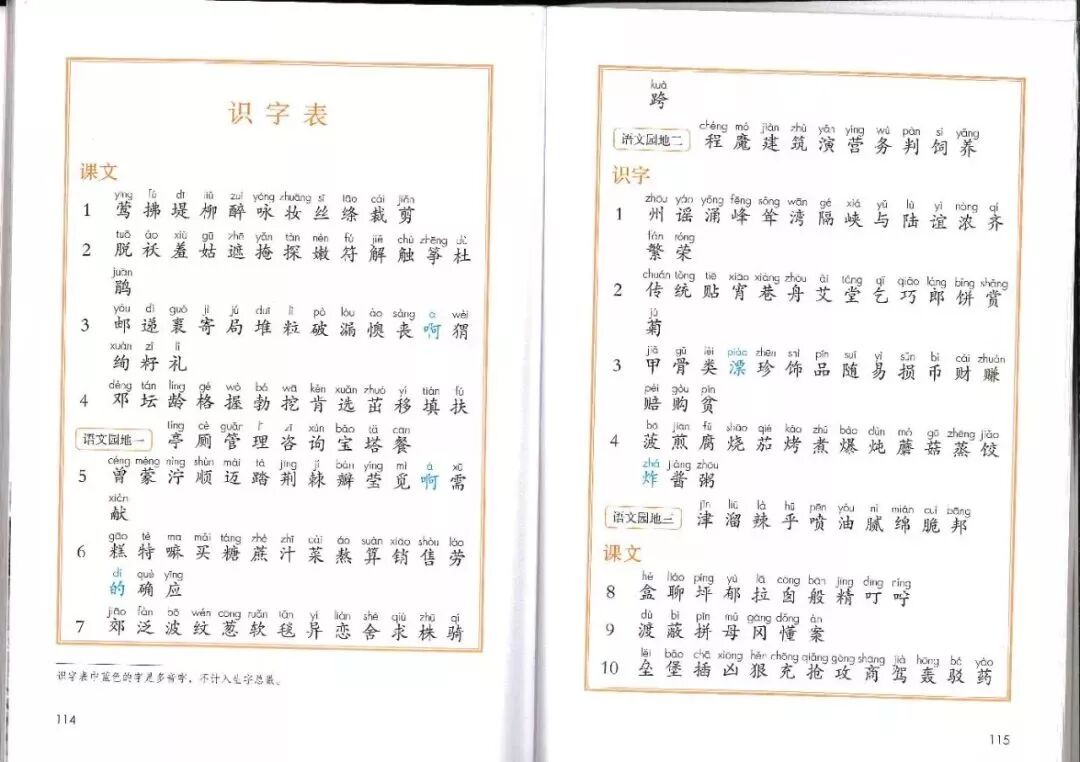 识字表
课文
yīng fú dī liǔ zuì yǒng zhuāng sī tāo cái jiǎn
1 莺 拂 堤 柳 醉 咏 妆 丝 绦 裁 剪
tuō ǎo xiū gū zhē yǎn tàn nèn fú jiě chù zhēng dù
2 脱 袄 羞 姑 遮 掩 探 嫩 符 解 触 筝 杜
juān
鹃
yóu dì guǒ jì jú duī lì pò lòu ào sàng a wèi
3 邮 递 裹 寄 局 堆 粒 破 漏 懊 丧 啊 猬
xuàn zǐ lǐ
绚 籽 礼
dèng tán líng gé wò bó wā kěn xuǎn zhuó yí tián fú
4 邓 坛 龄 格 握 勃 挖 肯 选 茁 移 填 扶
tíng cè guǎn lǐ zī xún bǎo tǎ cān
语文园地一 亭 厕 管 理 咨 询 宝 塔 餐
céng mēng nìng shùn mài tà jīng jí bàn yíng mì á xū
5 曾 蒙 泞 顺 迈 踏 荆 棘 瓣 莹 觅 啊 需
xiàn
献
gāo tè ma mǎi táng zhè zhī cài áo suàn xiāo shòu láo
6 糕 特 嘛 买 糖 蔗 汁 菜 熬 算 销 售 劳
dí què yīng
的 确 应
jiāo fàn bō wén cōng ruǎn tǎn yì liàn shě qiú zhū qí
7 郊 泛 波 纹 葱 软 毯 异 恋 舍 求 株 骑
识字表中蓝色的字是多音字，不计入生字总数。
114
kuà
跨
chéng mó jiàn zhù yǎn yíng wù pàn sì yǎng
语文园地二 程 魔 建 筑 演 营 务 判 饲 养
识字
zhōu yáo yǒng fēng sǒng wān gé xiá yǔ lù yì nóng qí
1 州 谣 涌 峰 耸 湾 隔 峡 与 陆 谊 浓 齐
fán róng
繁 荣
chuán tǒng tiē xiāo xiàng zhōu ài táng qǐ qiǎo láng bǐng shǎng
2 传 统 贴 宵 巷 舟 艾 堂 乞 巧 郎 饼 赏
jú
菊
jiǎ gǔ lèi piào zhēn shì pǐn suí yì sǔn bì cái zhuàn
3 甲 骨 类 漂 珍 饰 品 随 易 损 币 财 赚
péi gòu pín
赔 购 贫
bō jiān fǔ shāo qié kǎo zhǔ bào dùn mó gū zhēng jiǎo
4 菠 煎 腐 烧 茄 烤 煮 爆 炖 蘑 菇 蒸 饺
zhá jiàng zhōu
炸 酱 粥
jīn liū là hū pēn yóu nì mián cuì bāng
语文园地三 津 溜 辣 乎 喷 油 腻 绵 脆 邦
课文
hé liáo píng yù lā cōng bān jīng dīng níng
8 盒 聊 坪 郁 拉 囱 般 精 叮 咛
dù bì pīn mǔ gāng dǒng àn
9 渡 蔽 拼 母 冈 懂 案
lěi bǎo chā xiōng hěn chōng qiǎng gōng shāng jià hōng bó yào
10 垒 堡 插 凶 狠 充 抢 攻 商 驾 轰 驳 药
115